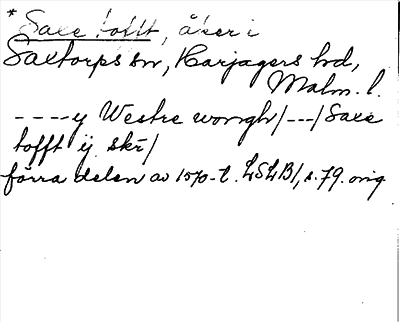 * Saxe tofft, åker i
Saxtorps sn, Harjagers hd,
Malm. l.
----y Westre wongh/---/Saxe
tofft ij skr/
förra delen av 1570-t. LSLB1, s. 79. orig